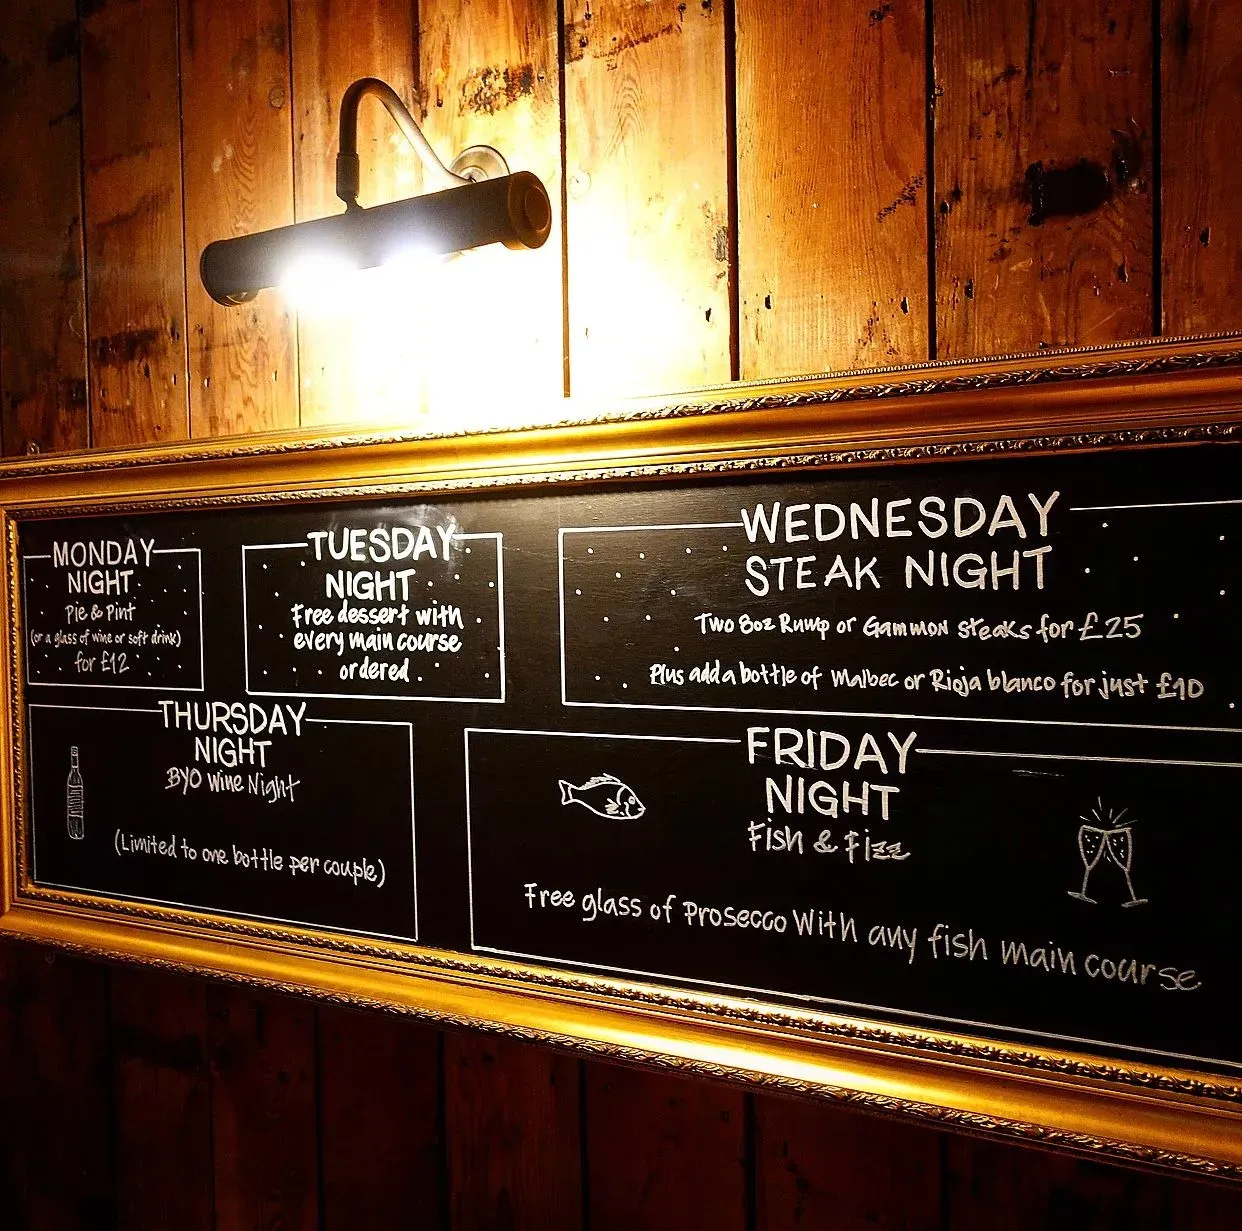 MONDAY
NIGHT
Pie & Pint
(or a glass of wine or soft drink)
for £12
TUESDAY
NIGHT
Free dessert with
every main course
ordered
WEDNESDAY
STEAK NIGHT
Two 8oz Rump or Gammon steaks for £25
Plus add a bottle of Malbec or Rioja blanco for just £10
THURSDAY
NIGHT
BYO Wine Night
(Limited to one bottle per couple)
FRIDAY
NIGHT
Fish & Fizz
Free glass of Prosecco With any fish main course